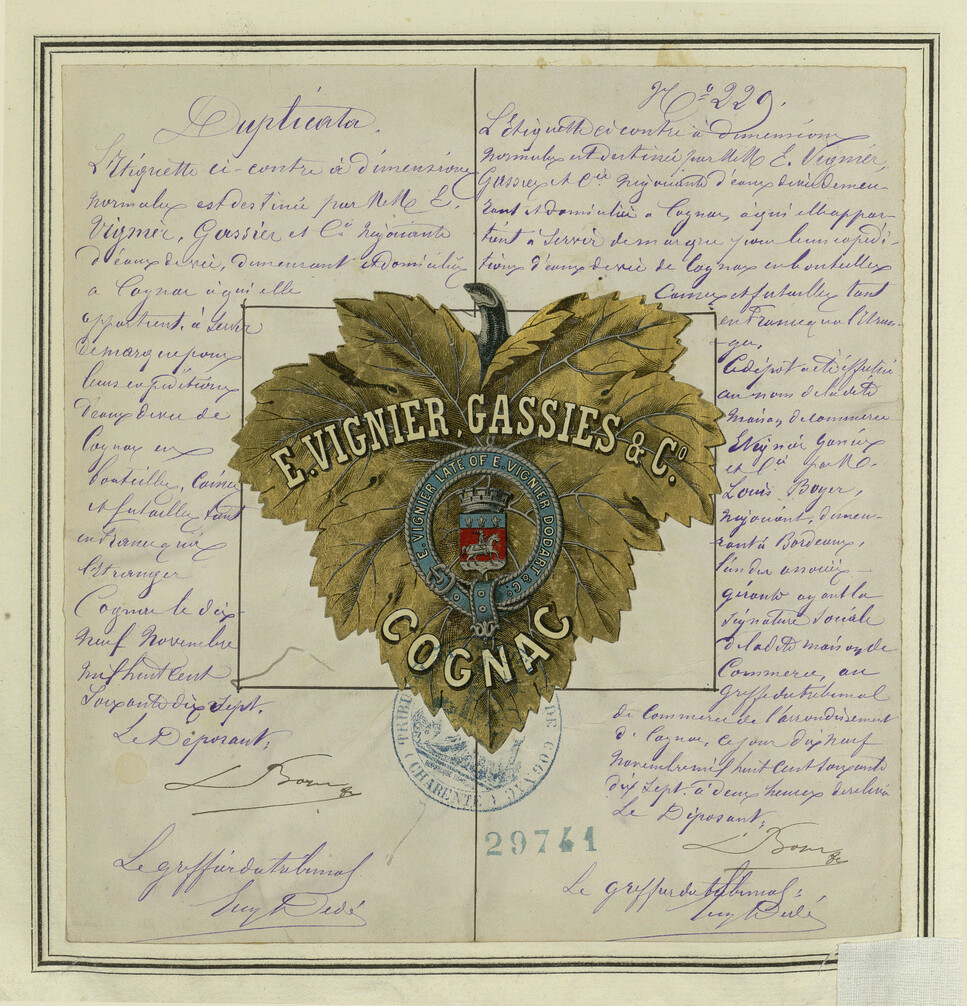 Duplicata.
L'Etiquette ci-contre à dimensions
normales est destinée par MM E.
Vignier, Gassies et Cie négociants
d'eaux de vie, demeurant et domiciliés
a Cognac à qui elle
appartient, à servir
de marque pour
leurs expéditions
d'eaux de vie de
Cognac en
bouteilles, Caisses
et futailles tant
en France qu'à
l'Etranger
Cognac le dix
neuf Novembre
mil huit cent
soixante dix sept.
Le Déposant:
L Boyer
Le greffier du tribunal
No 229.
L'Etiquette ci contre à dimensions
normales est destinée par MM E. Vignier,
Gassies et Cie négociants d'eaux de vie demeu-
rant et domiciliés a Cognac, à qui elle appar-
tient à servir de marque pour leurs expédi-
tions d'eaux de vie de Cognac en bouteilles
Caisses et futailles tant
en France qu'a l'Etran-
ger.
Ce dépot a été effectué
au nom de la dite
maison de commerce
E Vignier Gassies
et Cie par M.
Louis Boyer,
négociant, demeu-
rant à Bordeaux,
l'un des associés
gérants ayant la
signature sociale
de la dite maison de
Commerce, au
greffe du tribunal
de Commerce de l'arrondissement
de Cognac, ce jour dix neuf
Novembre mil huit cent soixante
dix sept à deux heures de relevée
Le Déposant:
L Boyer
Le greffier du tribunal:
E. VIGNIER, GASSIES & CIO.
E VIGNIER LATE OF E. VIGNIER DODART & Co.
COGNAC
TRIBU DE COGNAC
CHARENTE
29741